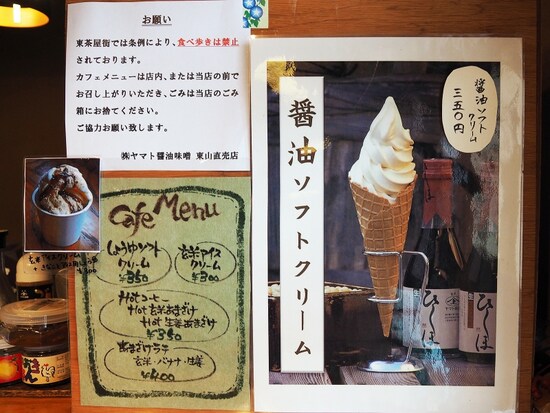 お願い
東茶屋街では条例により、食べ歩きは禁止
されております。
カフェメニューは店内、または当店の前で
お召し上がりいただき、ごみは当店のごみ
箱にお捨てください。
ご協力お願い致します。
㈱ヤマト醬油味噌 東山直売店
Cafe Menu
しょうゆソフト
クリーム
¥350
玄米アイス
クリーム
¥300
Hotコーヒー
Hot 玄米あまざけ
Hot 生姜あまざけ
¥350
あまざけラテ
玄米・バナナ・生姜
¥400
醤油ソフトクリーム
醤油ソフト
クリーム
三五〇円
ひしほ
ひしほ